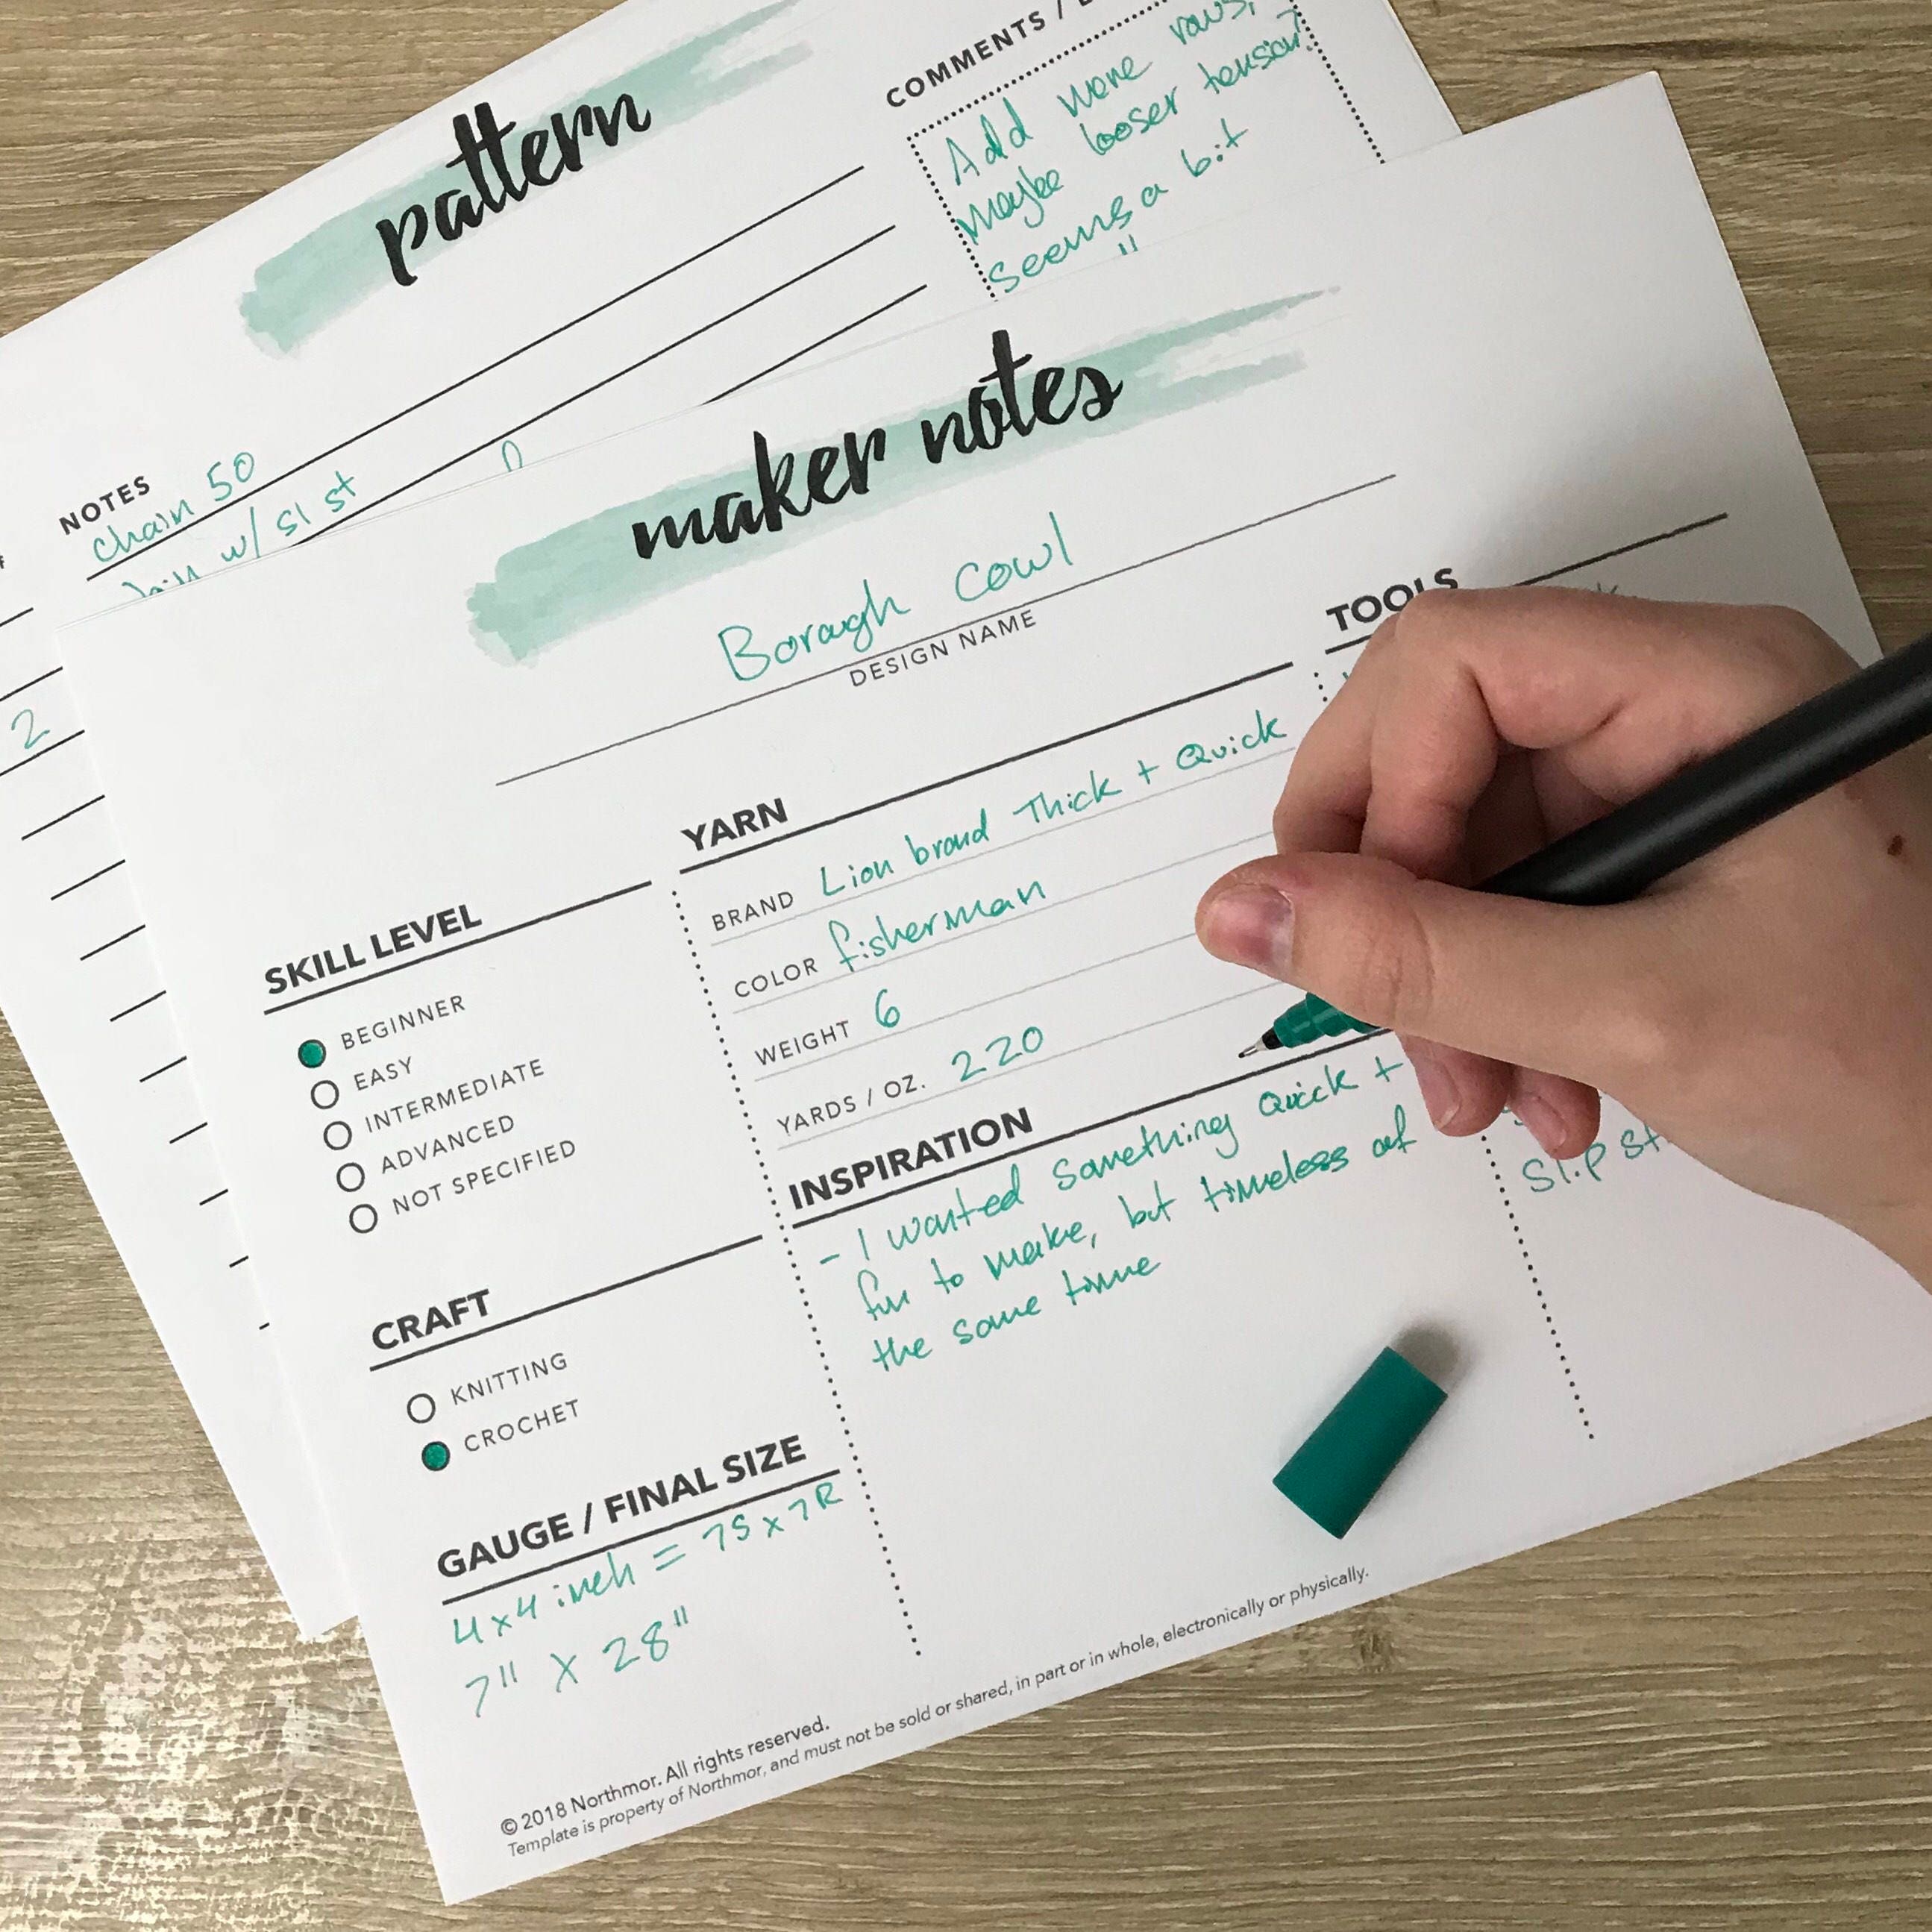 pattern
COMMENTS /
Add more rows,
maybe looser tension?
seems a bit
NOTES
chain 50
join w/ sl st
2
maker notes
Borough Cowl
DESIGN NAME
SKILL LEVEL
BEGINNER
EASY
INTERMEDIATE
ADVANCED
NOT SPECIFIED
CRAFT
KNITTING
CROCHET
GAUGE / FINAL SIZE
4x4 inch = 7S x 7R
7" X 28"
YARN
BRAND Lion brand Thick + Quick
COLOR fisherman
WEIGHT 6
YARDS / OZ. 220
INSPIRATION
- I wanted something Quick +
fun to make, but timeless at
the same time
TOOLS
Slip st
© 2018 Northmor. All rights reserved.
Template is property of Northmor, and must not be sold or shared, in part or in whole, electronically or physically.